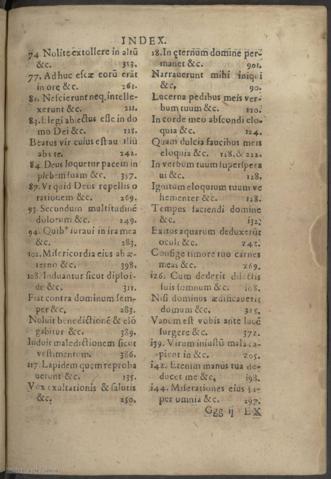 INDEX.
74 Nolite extollere in altũ
&c. 313.
77. Adhuc escæ eorũ erãt
in ore &c. 261.
81. Nescierunt neq, intelle-
xerunt &c. 211.
83. Elegi abiectus esse in do
mo Dei &c. 118.
Beatus vir cuius est au iliũ
abs te. 242.
84. Deus loquetur pacem in
plebem suam &c. 397.
89. Vt quid Deus repellis o
rationem &c. 269.
93. Secundum multitudinẽ
dolorum &c. 249.
94. Quibꝰ iuraui in ira mea
&c. 283.
102. Misericordia eius ab æ-
terno &c. 398.
108. Induantur sicut diploi-
de &c. 311.
Fiat contra dominum sem-
per &c. 283.
Noluit benedictionẽ & elõ
gabitur &c. 389.
Induit maledictionem sicut
vestimentum. 386.
117. Lapidem quem reproba
uerunt &c. 135.
Vox exultationis & salutis
&c. 250.
18. In æternum domine per-
manet &c. 901.
Narrauerunt mihi iniqui
&c, 90.
Lucerna pedibus meis ver-
bum tuum &c. 120.
In corde meo abscondi elo-
quia &c. 124.
Quam dulcia faucibus meis
eloquia &c. 118. & 212.
In verbum tuum superspera
ui &c. 128.
Ignitum eloquium tuum ve
hementer &c. 128.
Tempus faciendi domine
&c. 132.
Exitus aquarum deduxerũt
oculi &c. 242.
Confige timore tuo carnes
meas &c. 269.
126. Cum dederit dilectis
suis somnum &c. 108.
Nisi dominus ædificauerit
domum &c. 215.
Vanum est vobis ante lucẽ
surgere &c. 372.
139. Virum iniustũ mala ca-
pient in &c. 205.
142. Etenim manus tua de-
ducet me &c, 198.
144. Miserationes eius su-
per omnia &c. 297.
Ggg ij EX